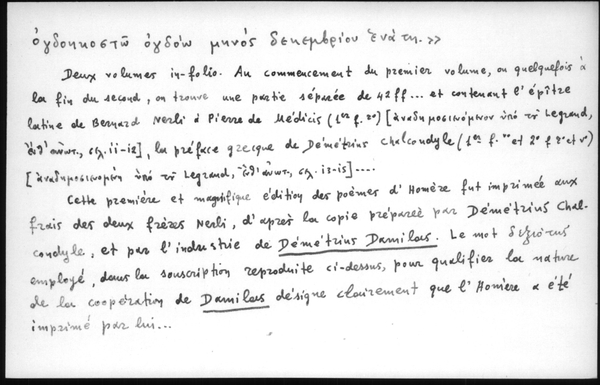 ὀγδοηκοστῶ ὀγδόω μηνός δεκεμβρίου ἐνάτη.»
Deux volumes in-folio. Au commencement du premier volume, ou quelquefois à
la fin du second, on trouve une partie séparée de 42 ff... et contenant l'épître
latine de Bernard Nerli à Pierre de Médicis (1er f. ro) [ἀναδημοσιευόμενον ὑπό τοῦ Legrand,
σελ. 11-12], la préface grecque de Démétrius Chalcondyle (1er f. vo et 2e f. ro et vo)
[ἀναδημοσιευομένη ὑπό τοῦ Legrand, σελ. 13-15]....
Cette première et magnifique édition des poèmes d'Homère fut imprimée aux
frais des deux frères Nerli, d'après la copie préparée par Démétrius Chal-
condyle, et par l'industrie de Démétrius Damilas. Le mot δεξιότης
employé, dans la souscription reproduite ci-dessus, pour qualifier la nature
de la coopération de Damilas désigne clairement que l'Homère a été
imprimé par lui...